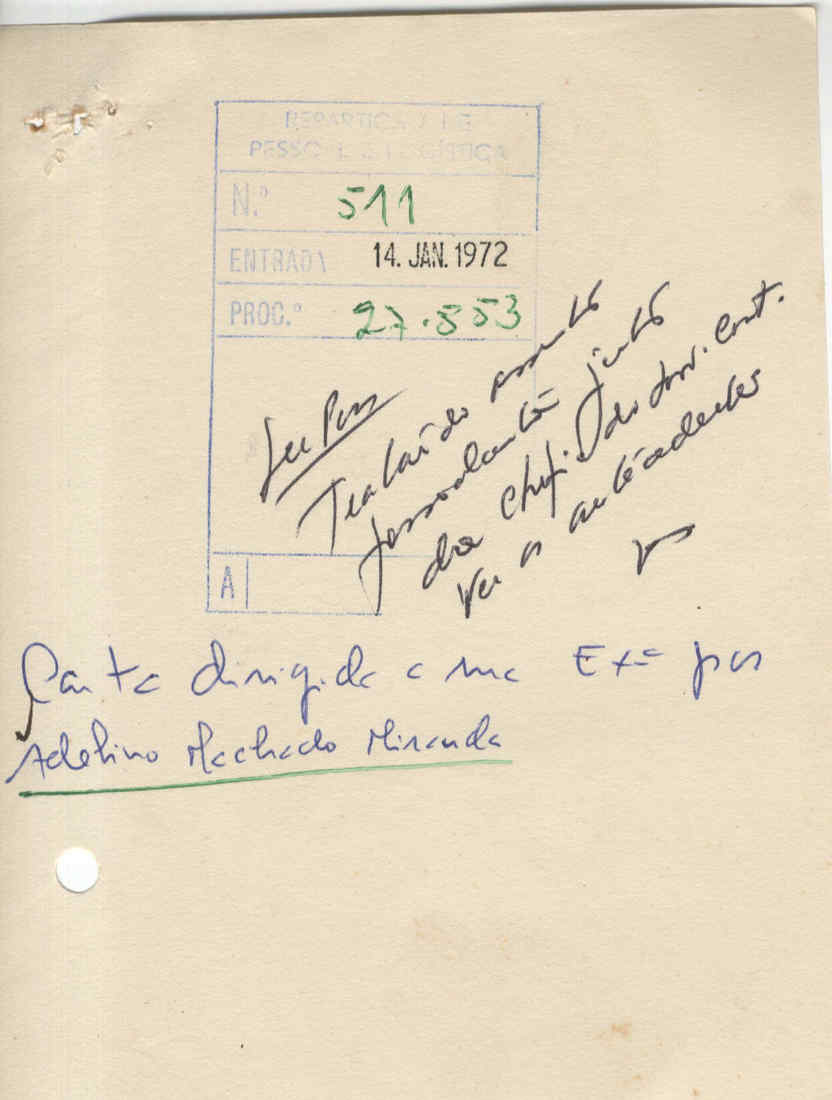 REPARTIÇÃO DE
PESSOAL E LOGÍSTICA
N.º 511
ENTRADA 14. JAN. 1972
PROC.º 27.553
Tratar do assunto
pessoalmente junto
da chefia do serv. cont.
Ver os antecedentes
A
Carta dirigida a sua Exª por
Adelino Machado Miranda